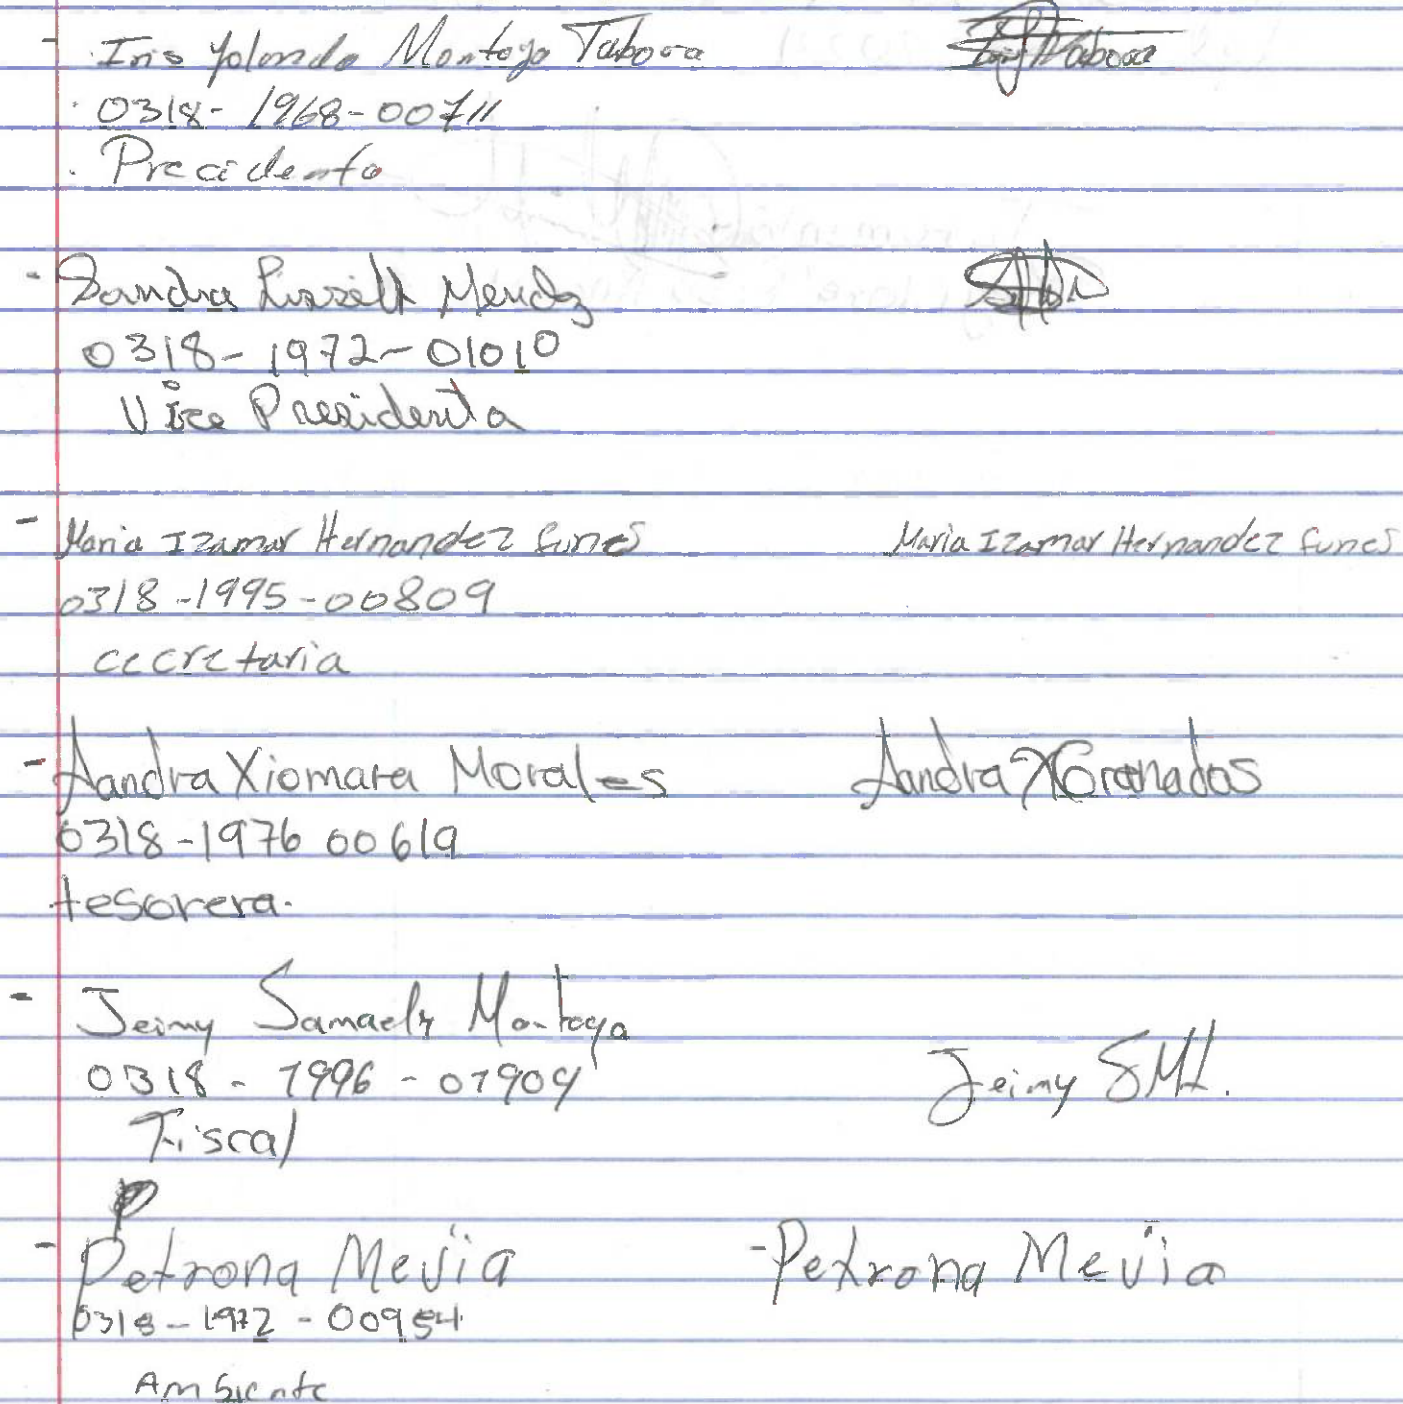 - Iris Yolanda Montoya Tabora
0318-1968-00711
Precidenta
- Sandra Lizzeth Mendez
0318-1972-01010
Vice Presidenta
- Maria Izamar Hernandez funes Maria Izamar Hernandez funes
0318-1995-00809
cecretaria
- Sandra Xiomara Morales Sandra X Granados
0318-1976 00619
tesorera.
- Jeimy Samaely Montoya
0318-1996-01904 Jeimy SML.
Fiscal
- Petrona Mejia - Petrona Mejia
0318-1972-00954
Ambiente